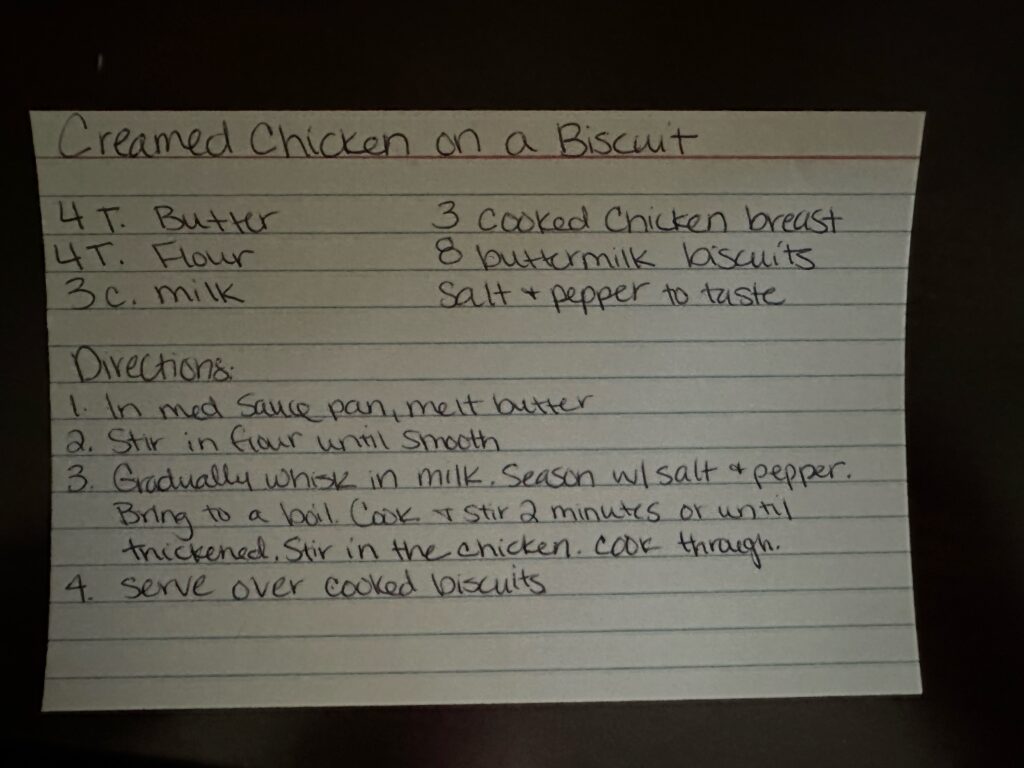 Creamed Chicken on a Biscuit
4 T. Butter 3 cooked Chicken breast
4 T. Flour 8 buttermilk biscuits
3 c. milk Salt + pepper to taste
Directions:
1. In med sauce pan, melt butter
2. Stir in flour until smooth
3. Gradually whisk in milk. Season w/ salt + pepper.
Bring to a boil. Cook + stir 2 minutes or until
thickened. Stir in the chicken. Cook through.
4. serve over cooked biscuits